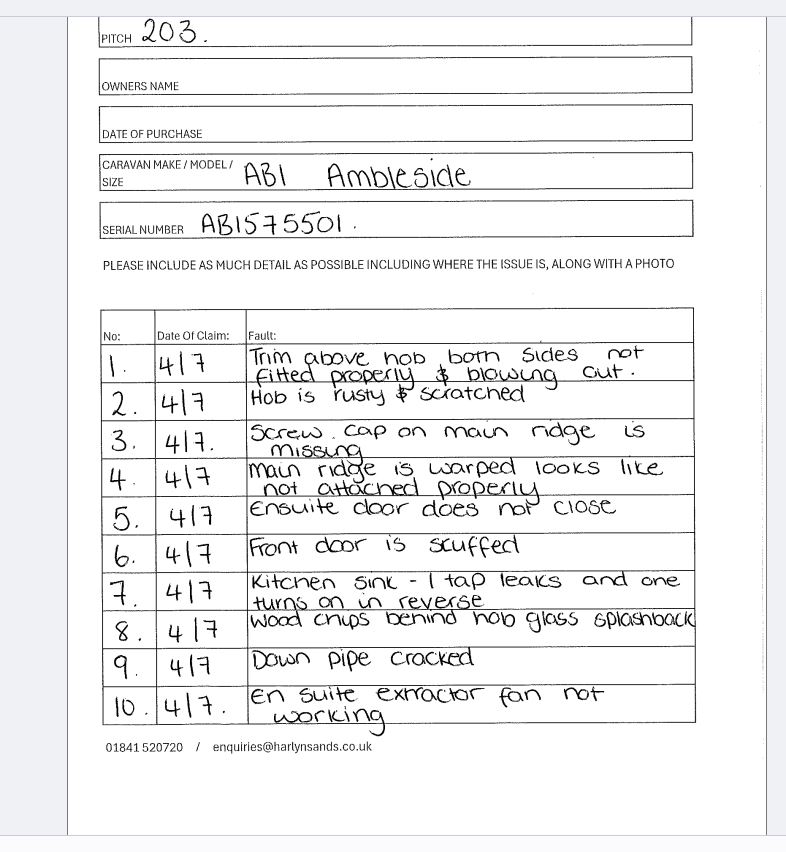 PITCH 203.
OWNERS NAME
DATE OF PURCHASE
CARAVAN MAKE / MODEL /
SIZE ABI Ambleside
SERIAL NUMBER ABI575501.
PLEASE INCLUDE AS MUCH DETAIL AS POSSIBLE INCLUDING WHERE THE ISSUE IS, ALONG WITH A PHOTO
No: Date Of Claim: Fault:
1. 4/7 Trim above hob both sides not
fitted properly & blowing out.
2. 4/7 Hob is rusty & scratched
3. 4/7. Screw cap on main ridge is
missing
4. 4/7 Main ridge is warped looks like
not attached properly
5. 4/7 Ensuite door does not close
6. 4/7 Front door is scuffed
7. 4/7 Kitchen sink - 1 tap leaks and one
turns on in reverse
8. 4/7 Wood chips behind hob glass splashback
9. 4/7 Down pipe cracked
10. 4/7. En suite extractor fan not
working
01841 520720 / enquiries@harlynsands.co.uk